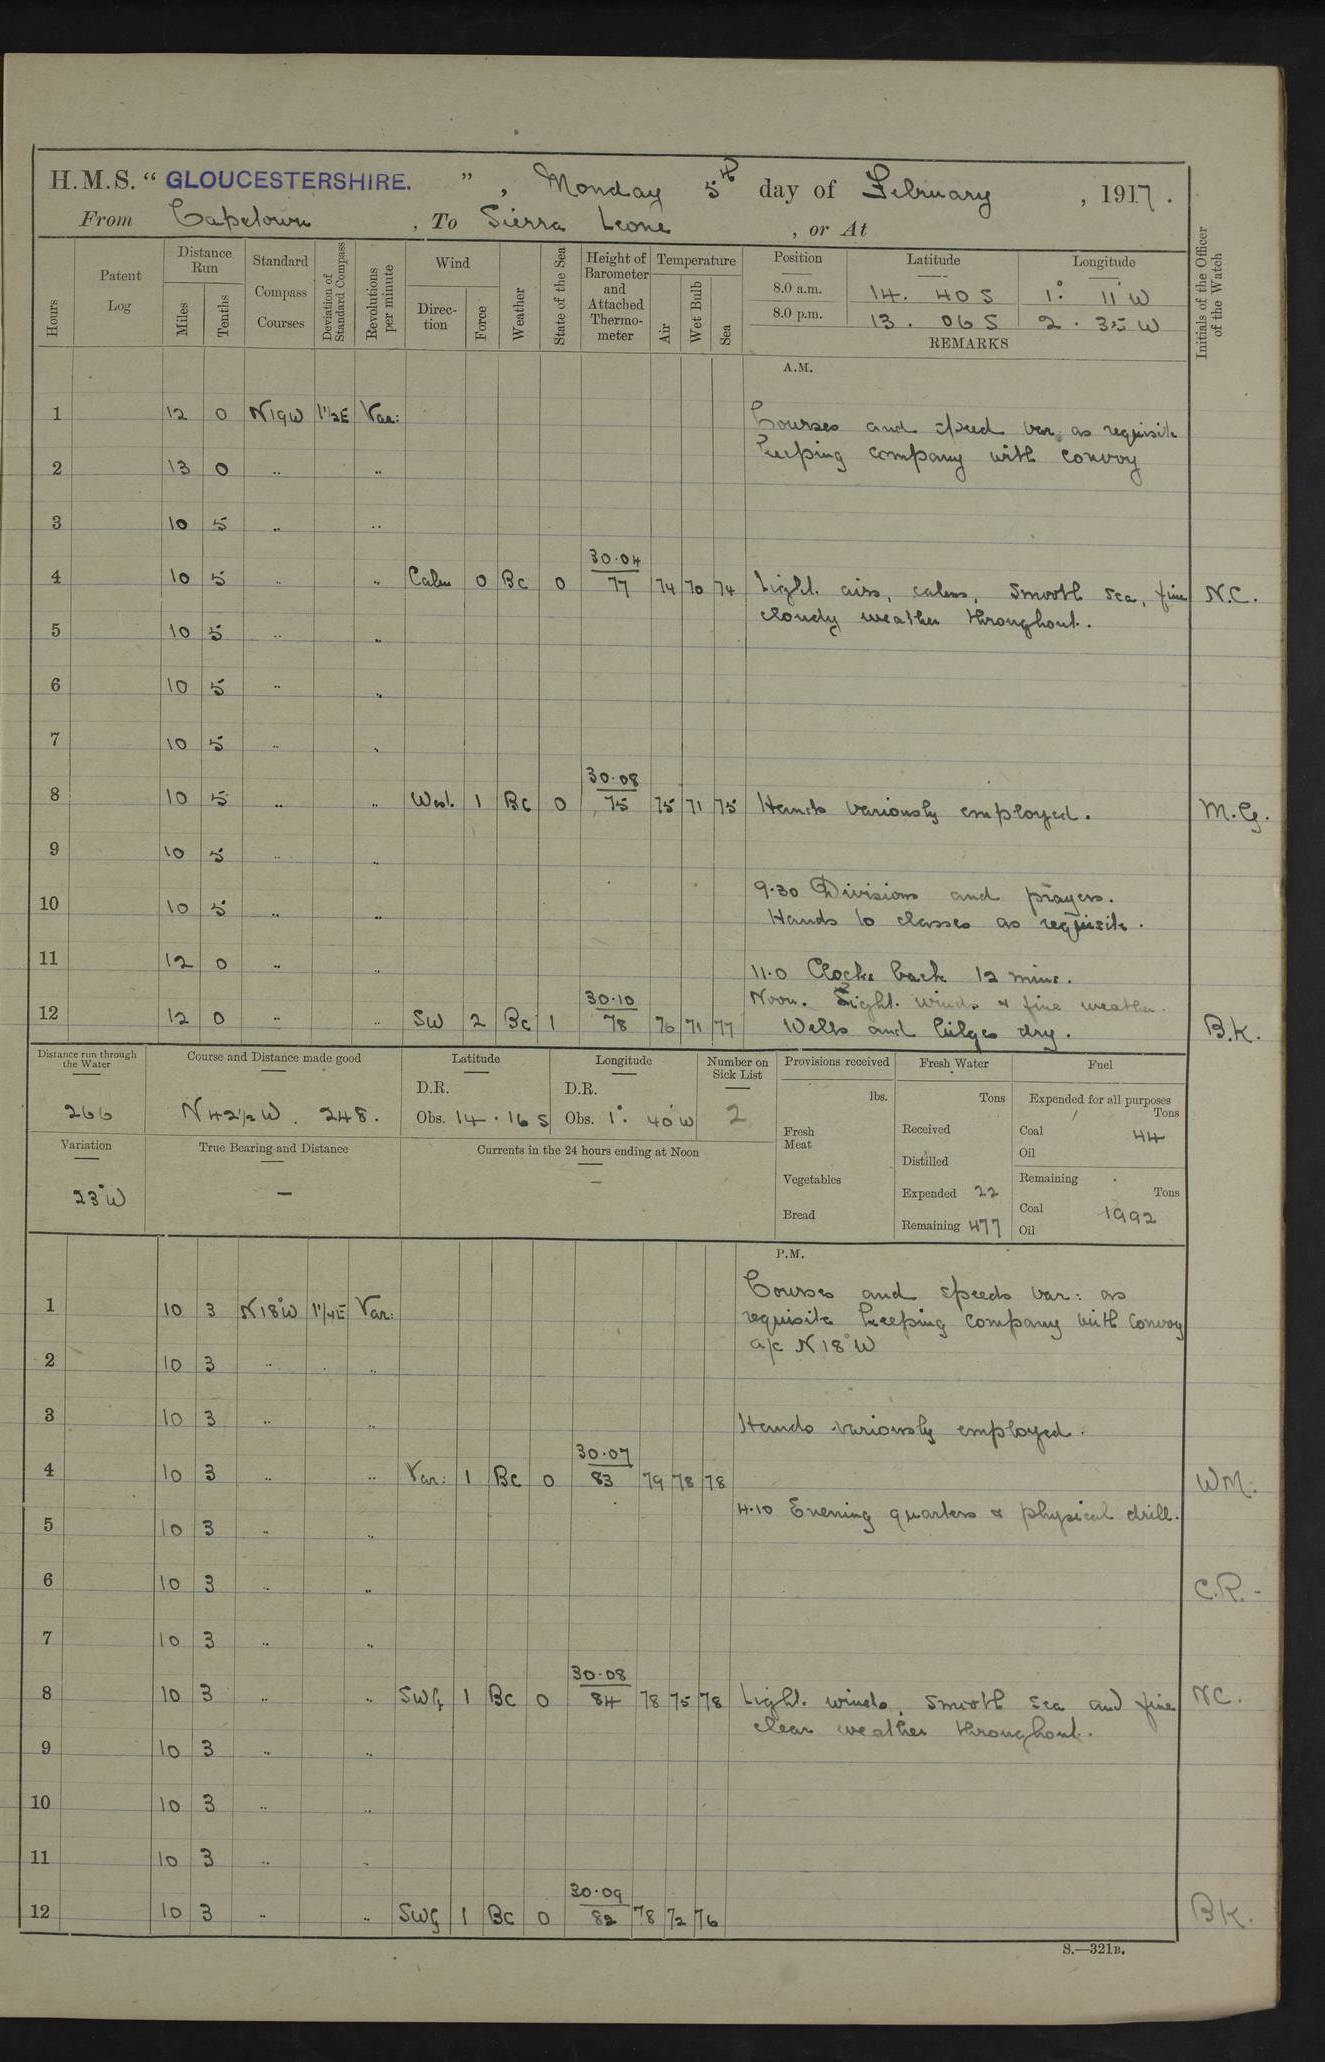 H.M.S. “ GLOUCESTERSHIRE. ” , Monday 5th day of February , 1917 .
From Capetown , To Sierra Leone , or At
Hours
Patent Log
Distance Run
Miles
Tenths
Standard Compass Courses
Deviation of Standard Compass
Revolutions per minute
Wind
Direction
Force
Weather
State of the Sea
Height of Barometer and Attached Thermometer
Temperature
Air
Wet Bulb
Sea
Position Latitude Longitude
8.0 a.m. 14 . 40 S 1° 11' W
8.0 p.m. 13 . 06 S 2 . 35 W
REMARKS
Initials of the Officer of the Watch
A.M.
1 12 0 N19W 1½E Var: Courses and speed var. as requisite
2 13 0 .. .. keeping company with convoy
3 10 5 .. ..
4 10 5 .. .. Calm 0 Bc 0 30.04 77 74 70 74 Light. airs, calms, smooth sea, fine N.C.
cloudy weather throughout.
5 10 5 .. ..
6 10 5 .. ..
7 10 5 .. ..
8 10 5 .. .. West. 1 Bc 0 30.08 75 75 71 75 Hands variously employed. M.G.
9 10 5 .. ..
9.30 Divisions and prayers.
10 10 5 .. .. Hands to classes as requisite.
11 12 0 .. .. 11.0 Clocks back 12 mins.
Noon. Light. winds & fine weather.
12 12 0 .. .. SW 2 Bc 1 30.10 78 76 71 77 Wells and bilges dry. B.K.
Distance run through the Water
266
Course and Distance made good
N 42½ W . 248 .
Latitude
D.R.
Obs. 14 . 16 S
Longitude
D.R.
Obs. 1° . 40' W
Number on Sick List
2
Provisions received
lbs.
Fresh Meat
Vegetables
Bread
Fresh Water
Tons
Received
Distilled
Expended 22
Remaining 477
Fuel
Expended for all purposes
Tons
Coal 44
Oil
Remaining
Tons
Coal 1992
Oil
Variation
23° W
True Bearing and Distance
—
Currents in the 24 hours ending at Noon
—
P.M.
Courses and speeds var: as
1 10 3 N18°W 1¼E Var: requisite keeping company with convoy
a/c N 18° W
2 10 3 .. . ..
3 10 3 .. .. Hands variously employed.
4 10 3 .. .. Var: 1 Bc 0 30.07 83 79 78 78 WM.
4.10 Evening quarters & physical drill.
5 10 3 .. ..
6 10 3 .. .. C.R.
7 10 3 .. ..
8 10 3 .. .. 1 Bc 0 30.08 84 78 75 78 Light. winds, smooth sea and fine NC.
clear weather throughout.
9 10 3 .. ..
10 10 3 .. ..
11 10 3 .. ..
12 10 3 .. .. 1 Bc 0 30.09 82 78 72 76 BK.
S.—321B.